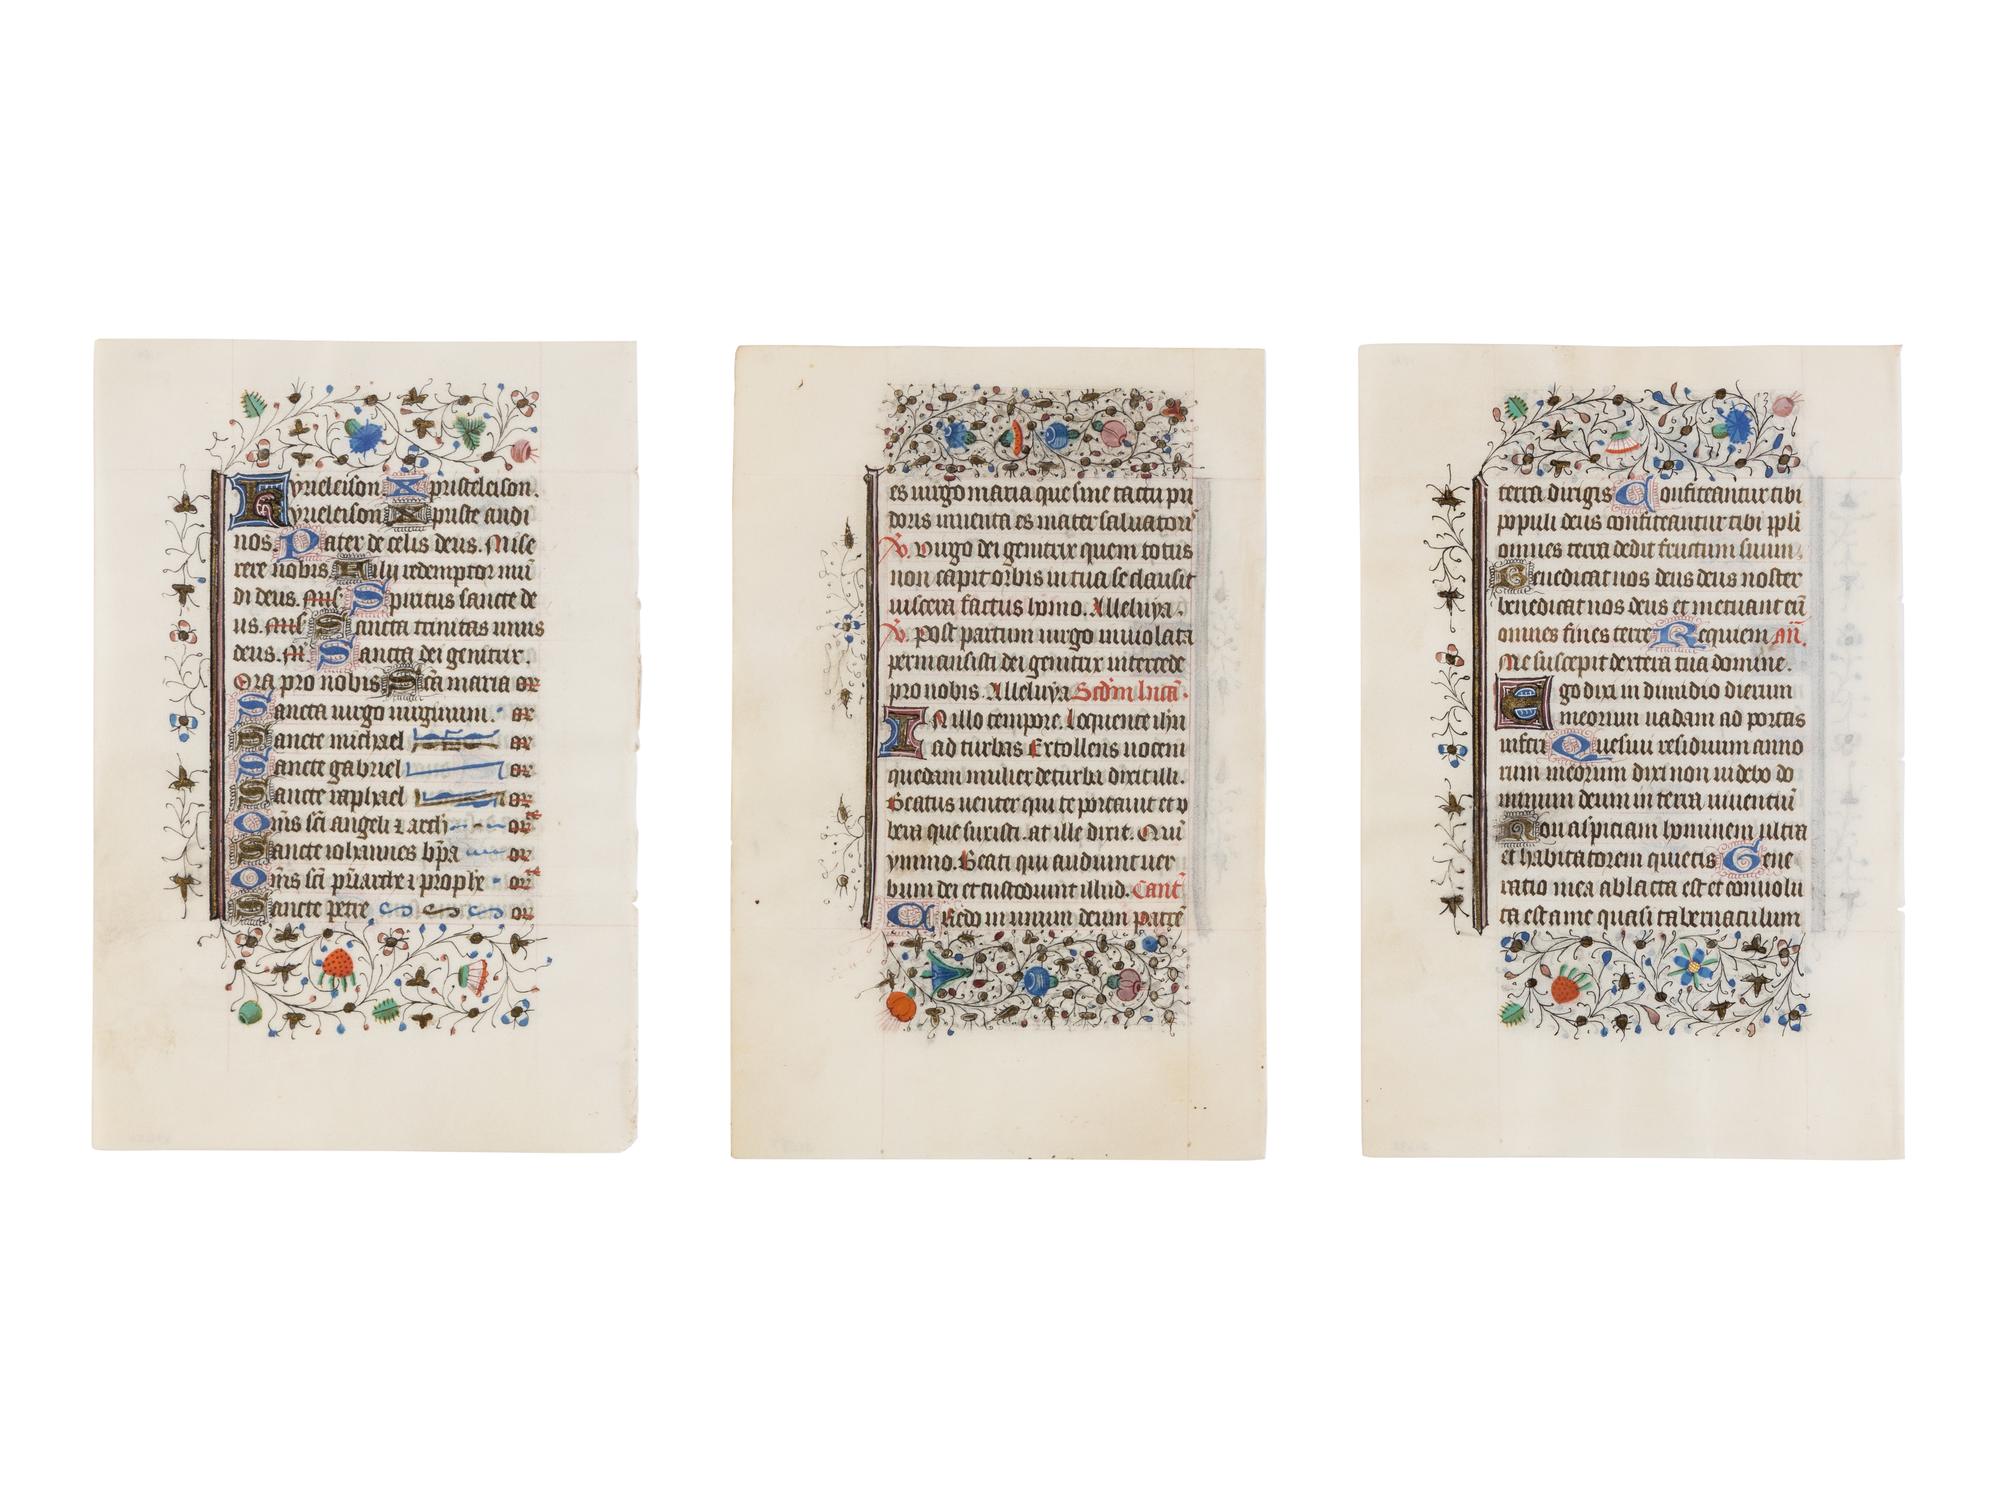 Kyrieleison Xpristeleison.
Kyrieleison Xpriste audi
nos. Pater de celis deus. Mise
rere nobis Fili redemptor mū
di deus. Mis̄ Spiritus sancte de
us. Mis̄ Sancta trinitas unus
deus. M̄ Sancta dei genitrix.
Ora pro nobis Sc̄a maria or
Sancta virgo virginum. or
Sancte michael or
Sancte gabriel or
Sancte raphael or
Om̄s sc̄i angeli ⁊ arch or
Sancte iohannes bp̄a or
Om̄s sc̄i pr̄iarche ⁊ prophe or
Sancte petre or
es virgo maria que sine tactu pu
doris inventa es mater salvatoris
℣. Virgo dei genitrix quem totus
non capit orbis in tua se clausit
viscera factus homo. Alleluya.
℣. Post partum virgo inviolata
permansisti dei genitrix intercede
pro nobis. Alleluya Scd̄m lucā.
IN illo tempore. Loquente ihū
ad turbas Extollens vocem
quedam mulier de turba dixit illi.
Beatus venter qui te portavit et v
bera que suxisti. at ille dixit. Quī
ymmo. Beati qui audiunt ver
bum dei et custodiunt illud. Cant̄
Credo in unum deum patrē
terra dirigis Confiteantur tibi
populi deus confiteantur tibi pp̄li
omnes terra dedit fructum suum.
Benedicat nos deus deus noster
benedicat nos deus et metuant eū
omnes fines terre Requiem An̄.
Me suscepit dextera tua domine.
Ego dixi in dimidio dierum
meorum vadam ad portas
inferi Quesivi residuum anno
rum meorum dixi non videbo do
minum deum in terra viventiū
Non aspiciam hominem ultra
et habitatorem quietis Gene
ratio mea ablata est et convolu
ta est a me quasi tabernaculum